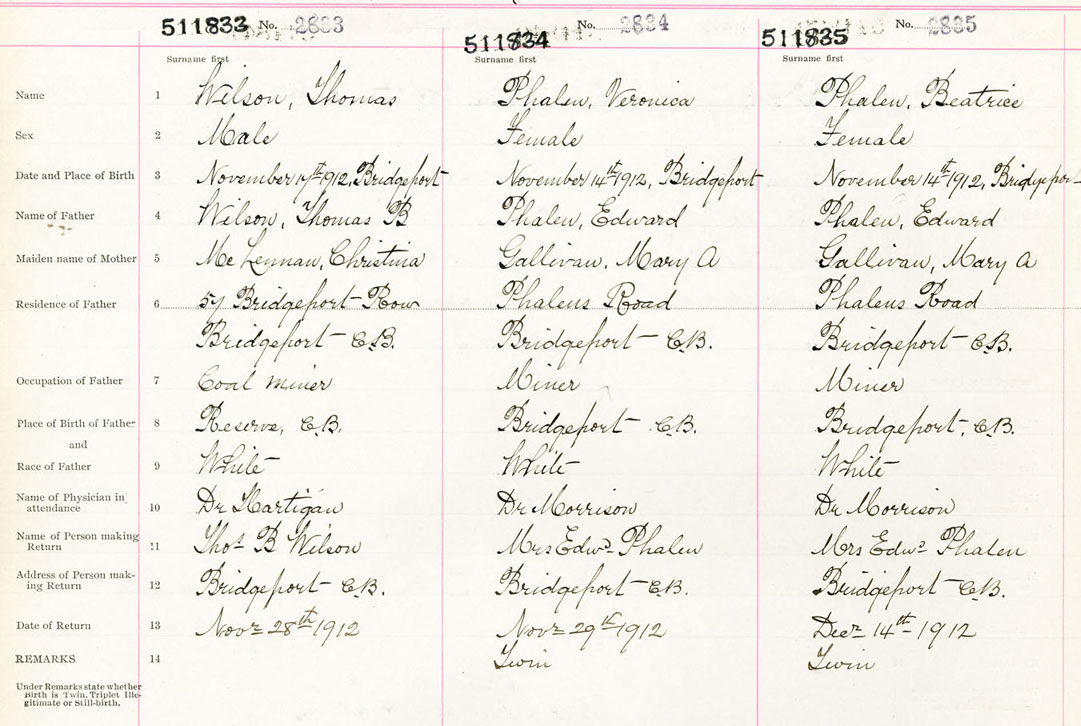 511833 No. 2833 511834 No. 2834 511835 No. 2835
Surname first Surname first Surname first
Name 1 Wilson, Thomas Phalen, Veronica Phalen, Beatrice
Sex 2 Male Female Female
Date and Place of Birth 3 November 17th 1912, Bridgeport November 14th 1912, Bridgeport November 14th 1912, Bridgepor
Name of Father 4 Wilson, Thomas B Phalen, Edward Phalen, Edward
Maiden name of Mother 5 Mc Lennan, Christina Gallivan, Mary A Gallivan, Mary A
Residence of Father 6 57 Bridgeport Row Phalens Road Phalens Road
Bridgeport C.B. Bridgeport C.B. Bridgeport C.B.
Occupation of Father 7 Coal miner Miner Miner
Place of Birth of Father 8 Reserve, C.B. Bridgeport C.B. Bridgeport, C.B.
and
Race of Father 9 White White White
Name of Physician in
attendance 10 Dr Hartigan Dr Morrison Dr Morrison
Name of Person making
Return 11 Thos B Wilson Mrs Edwd Phalen Mrs Edwd Phalen
Address of Person mak-
ing Return 12 Bridgeport C.B. Bridgeport C.B. Bridgeport C.B.
Date of Return 13 Novr 28th 1912 Novr 29th 1912 Decr 14th 1912
REMARKS 14 Twin Twin
Under Remarks state whether
Birth is Twin, Triplet Ille-
gitimate or Still-birth.